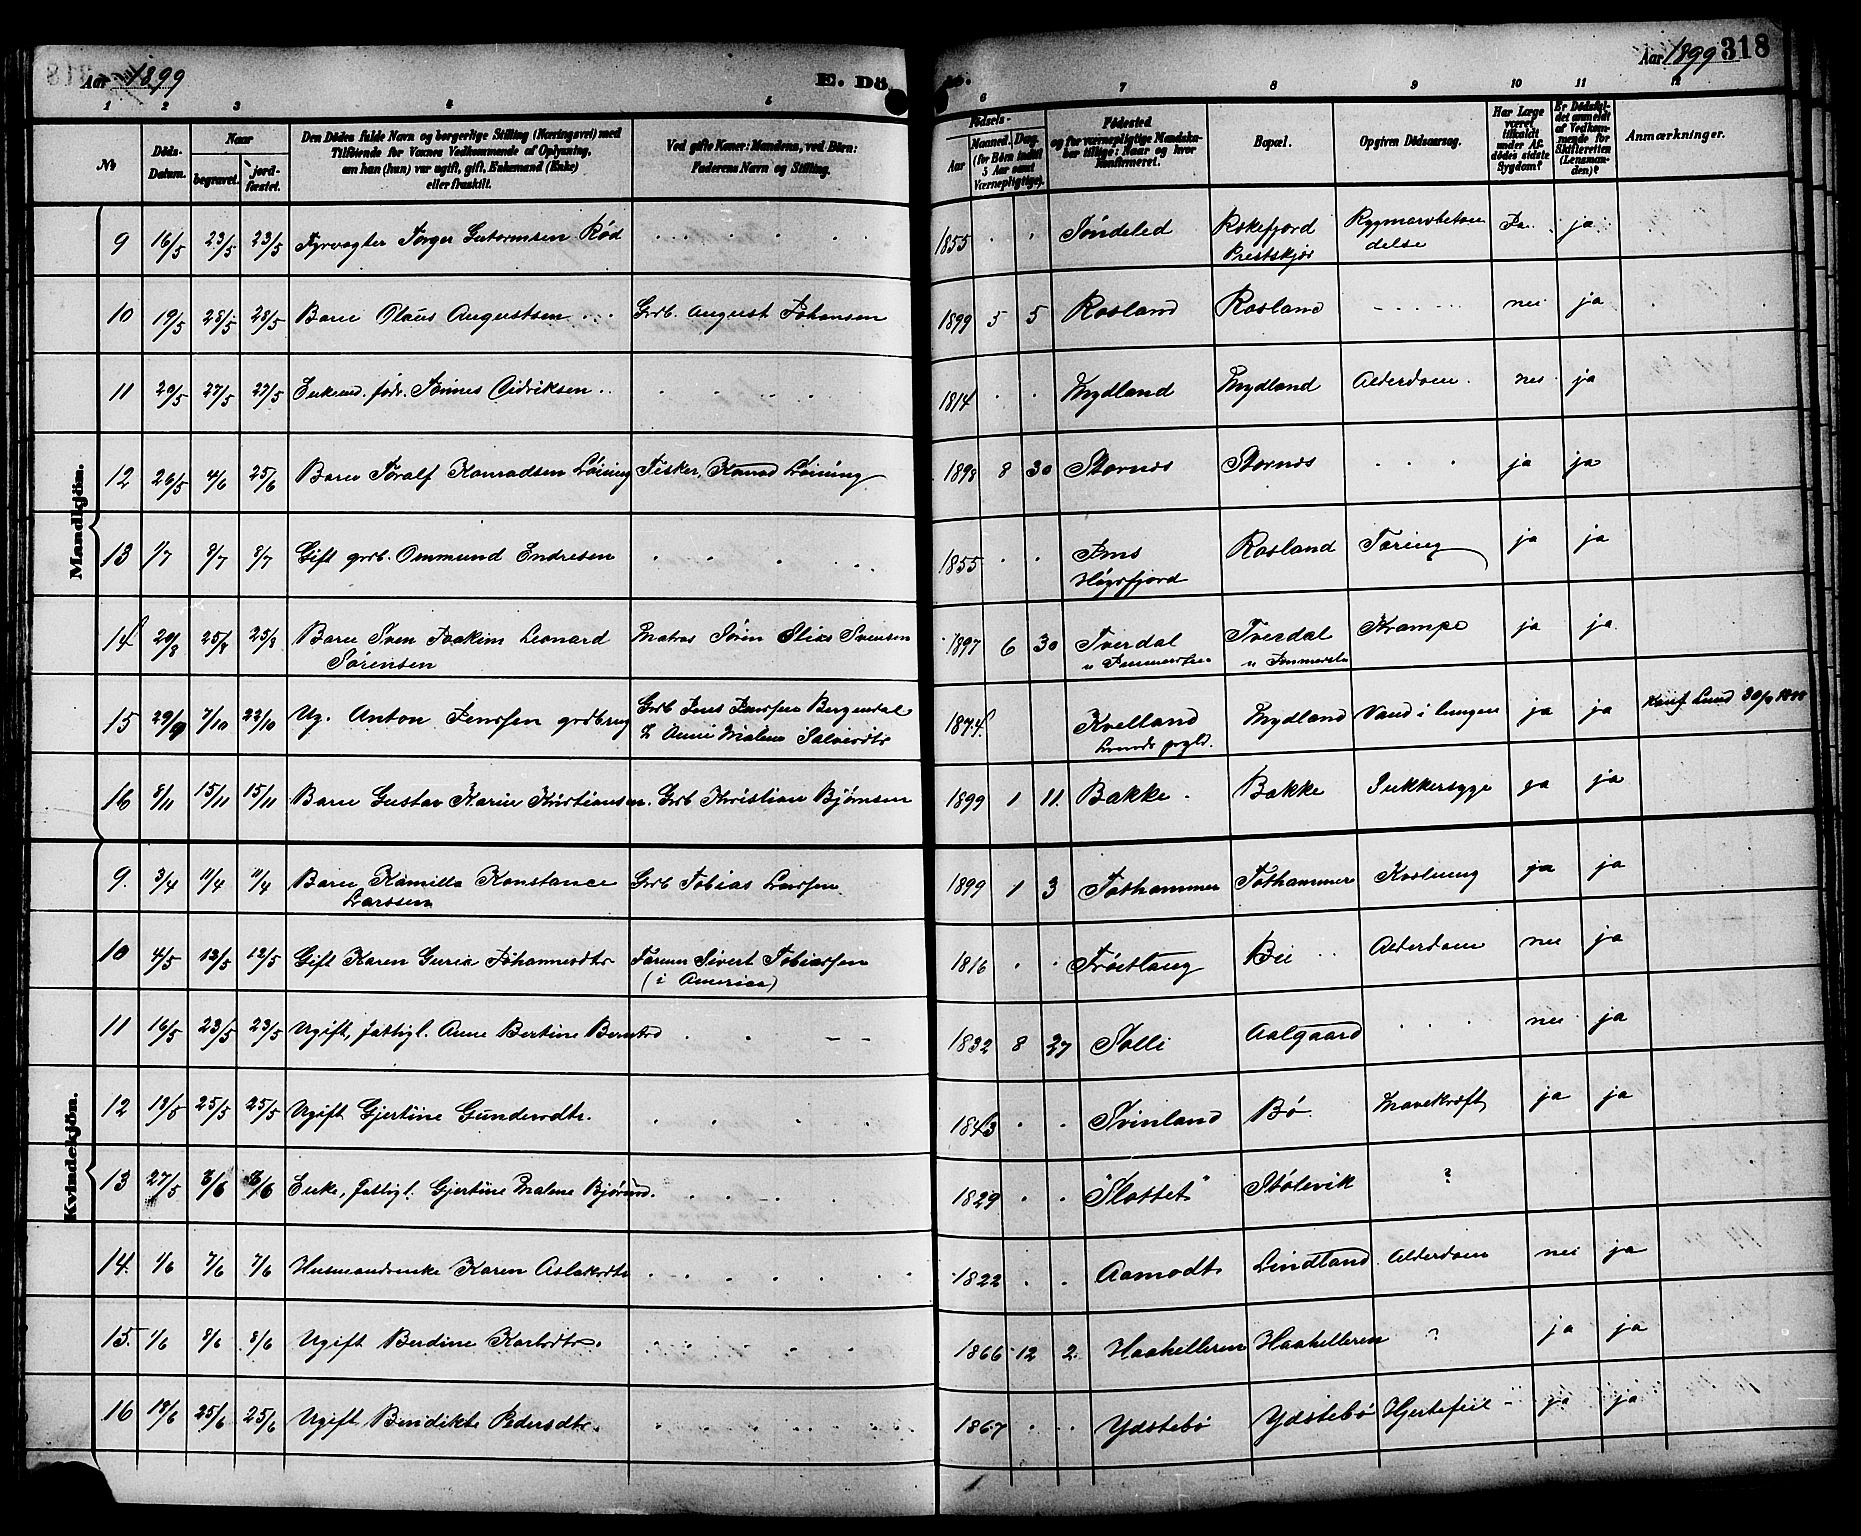 Aar 1899 E. Dö
1 2 3 4 5
№
Döds-Datum.
Naar
begravet.
jord-fæstet.
Den Dödes fulde Navn og borgerlige Stilling (Næringsvei) med
Tilföiende for Voxnes Vedkommende af Oplysning,
om han (hun) var ugift, gift, Enkemand (Enke)
eller fraskilt.
Ved gifte Koner: Mandens, ved Börn:
Faderens Navn og Stilling.
Aar 1899 318
6 7 8 9 10 11 12
Födsels-
Aar
Maaned. Dag.
(for Börn indtil
5 Aar samt
Værnepligtige).
Födested
og for værnepligtige Mandska-
ber tillige: Naar og hvor
konfirmeret.
Bopæl.
Opgiven Dödsaarsag.
Har Læge
været
tilkaldt
under Af-
dödes sidste
Sygdom?
Er Dödsfal-
det anmeldt
af Vedkom-
mende for
Skifteretten
(Lensman-
den)?
Anmærkninger.
Mandkjön.
9 16/5 23/5 23/5 Fyrvogter Torger Gutormsen Rød 1855 Søndeled Rekefjord Rygmarvbeten Ja ja
Prestskjær delse
10 19/5 28/5 28/5 Barn Olaus Augustsen Grb. August Johansen 1899 5 5 Rosland Rosland nei ja
11 20/5 27/5 27/5 Enkemd. føðr. Tønnes Eidriksen 1814 Mydland Mydland Alderdom. nei ja
12 26/5 4/6 25/6 Barn Toralf Konradsen Løining Fisker, Konrad Løining 1898 8 30 Stornes Stornes ja ja
13 1/7 8/7 8/7 Gift grb. Ommund Endresen 1855 Ims Rosland Tæring ja ja
Høgsfjord
14 20/8 25/8 25/8 Barn Sven Joakim Leonard Matros Sören Elias Svensen 1897 6 30 Tverdal Tverdal Krampe ja ja
Sørensen
15 29/9 7/10 22/10 Ug. Anton Jenssen grdbrug Grb Jens Jenssen Bergendal 1874 Kvelland Mydland Vand i lungen ja ja
& Anne Malene Salvesdtr Lunds prgld.
16 8/11 15/11 15/11 Barn Gustav Karin Kristiansen. Grb Khristian Bjørnsen 1899 1 11. Bakke Bakke Sukkersyge ja ja
Kvindekjön.
9. 3/4 11/4 11/4 Barn Kamilla Konstance Grb Tobias Larssen 1899 1 3 Tothammer Tothammer Kvælning ja ja
Larssen
10 4/5 12/5 12/5 Gift Karen Guria Johannesdtr Tømm Sivert Tobiassen 1816 Frøstlang Bø Alderdom nei ja
(i America)
11 16/5 23/5 23/5 Ugift, fattigl. Anne Bertine Berntsd 1832 8 27 Solli Aalgaard nei ja
12 18/5 25/5 25/5 Ugift Gjertine Gundersdtr. 1843 Svinland Bø Mavekræft ja ja
13 27/5 3/6 3/6 Enke, fattigl. Gjertine Malene Bjørnsd. 1829 "Slottet" Stølevik ?
14. 1/6 7/6 7/6 Husmandsenke Karen Aslaksdtr 1822 Aamodt Lindland Alderdom nei ja
15. 1/6 8/6 8/6 Ugift Berdine Karlsdtr. 1866 12 2. Haahelleren Haahelleren ? ja ja
16 19/6 25/6 25/6 Ugift Bendikte Pedersdtr. 1867 Ydstebø Ydstebø Hjertefeil ja ja